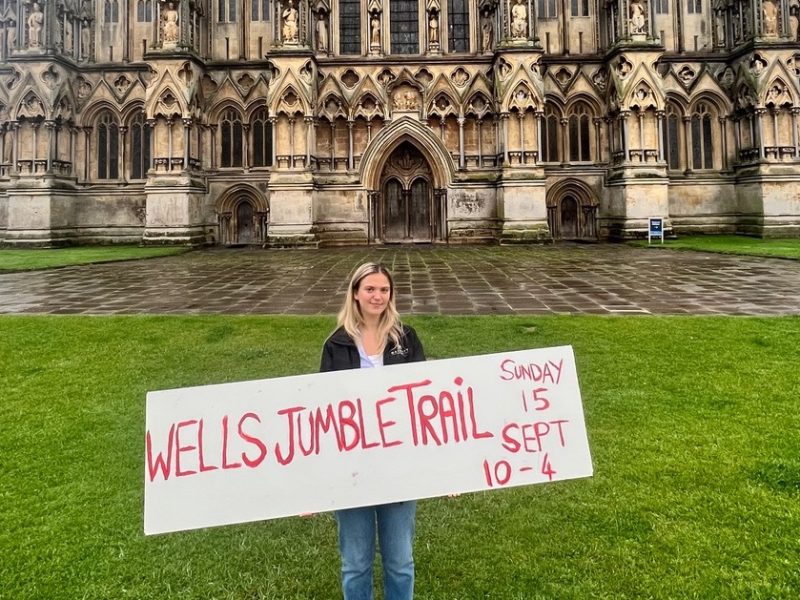 WELLS JUMBLE TRAIL
SUNDAY
15
SEPT
10-4